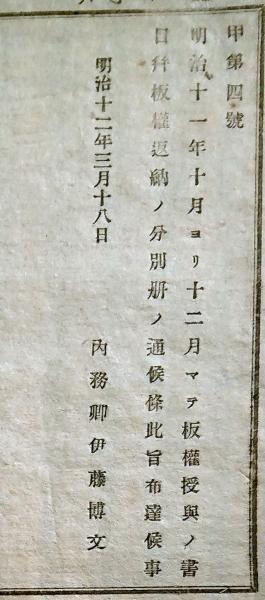 甲第四號
明治十一年十月ヨリ十二月マテ板權授與ノ書
目幷板權返納ノ分別册ノ通候條此旨布達候事
明治十二年三月十八日
內務卿伊藤博文